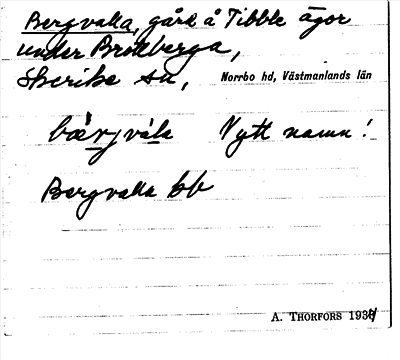 Bergvalla, gård å Tibble ägor
under Brodberga,
Skerike sn, Norrbo hd, Västmanlands län
bærjvála Nytt namn!
Bergvalla bb
A. THORFORS 1934